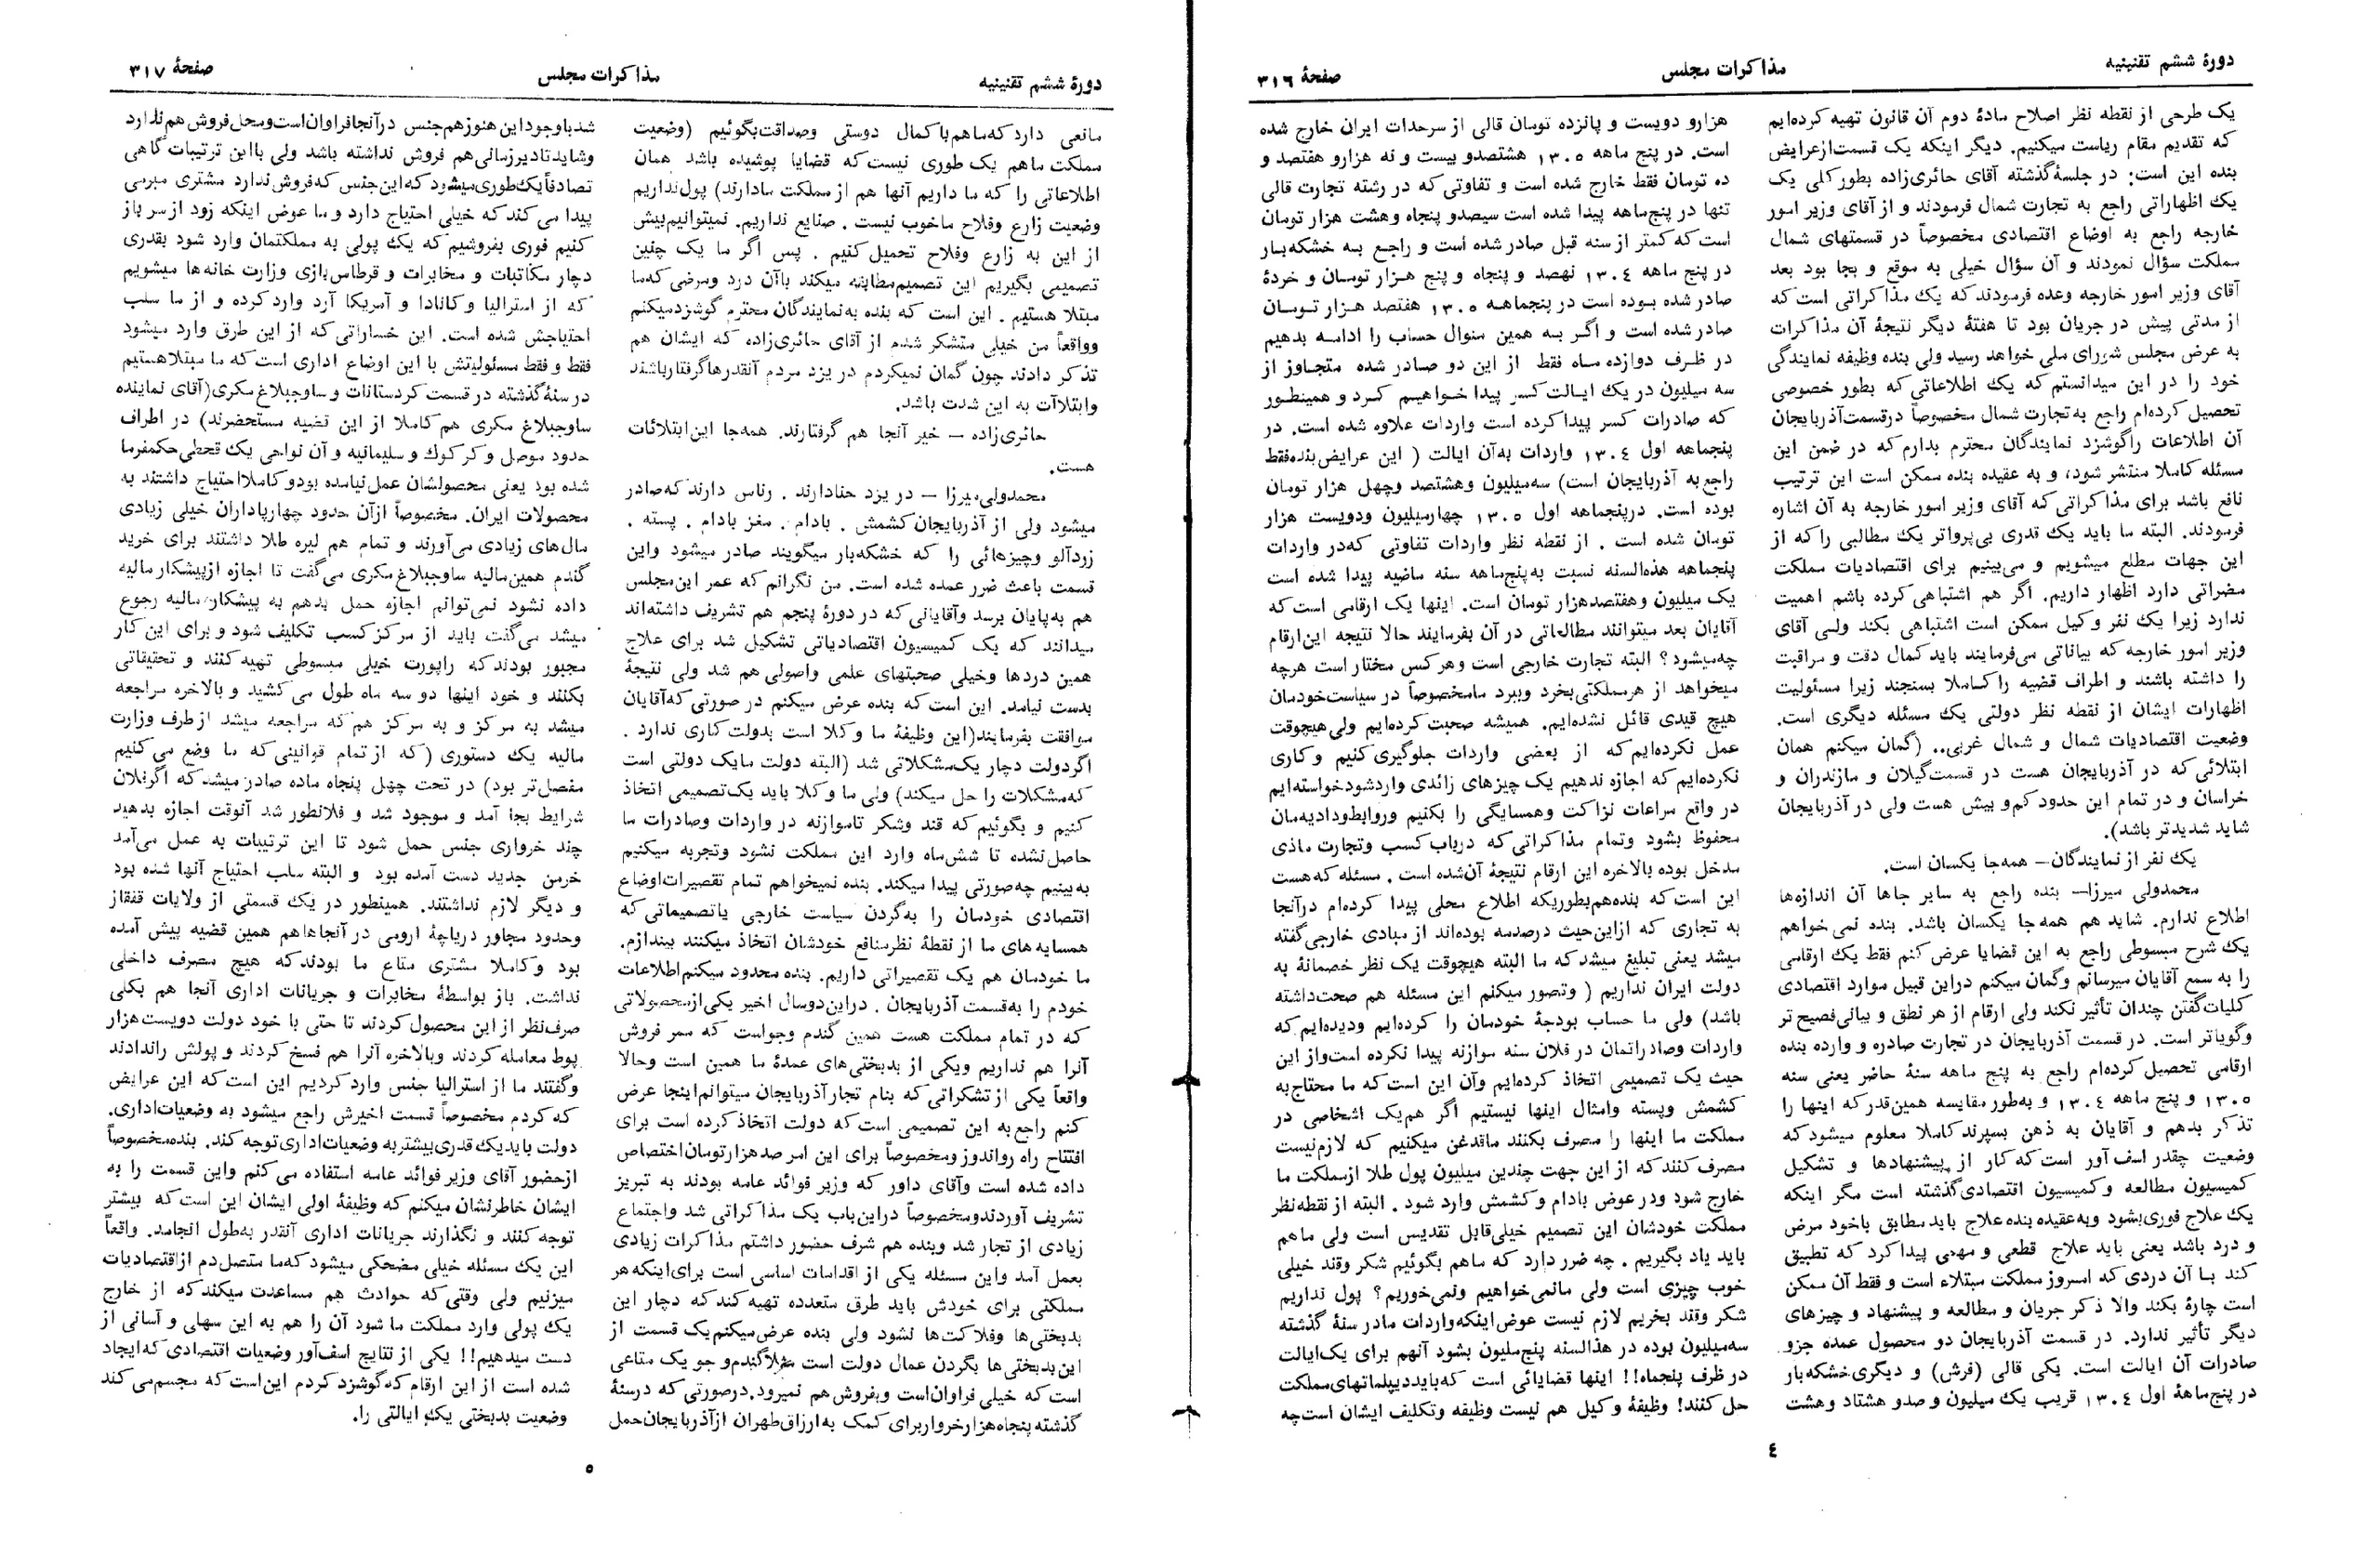 دورهٔ ششم تقنینیه
مذاکرات مجلس
صفحهٔ ۳۱۶
یک طرحی از نقطه نظر اصلاح مادهٔ دوم آن قانون تهیه کرده‌ایم
که تقدیم مقام ریاست میکنیم. دیگر اینکه یک قسمت از عرایض
بنده این است: در جلسهٔ گذشته آقای حائری‌زاده بطور کلی یک
یک اظهاراتی راجع به تجارت شمال فرمودند و از آقای وزیر امور
خارجه راجع به اوضاع اقتصادی مخصوصاً در قسمتهای شمال
مملکت سؤال نمودند و آن سؤال خیلی به موقع و بجا بود بعد
آقای وزیر امور خارجه وعده فرمودند که یک مذاکراتی است که
از مدتی پیش در جریان بود تا هفتهٔ دیگر نتیجهٔ آن مذاکرات
به عرض مجلس شورای ملی خواهد رسید ولی بنده وظیفه نمایندگی
خود را در این میدانستم که یک اطلاعاتی که بطور خصوصی
تحصیل کرده‌ام راجع به تجارت شمال مخصوصاً در قسمت آذربایجان
آن اطلاعات را گوشزد نمایندگان محترم بدارم که در ضمن این
مسئله کاملا منتشر شود، و به عقیده بنده ممکن است این ترتیب
نافع باشد برای مذاکراتی که آقای وزیر امور خارجه به آن اشاره
فرمودند. البته ما باید یک قدری بی‌پرواتر یک مطالبی را که از
این جهات مطلع میشویم و می‌بینیم برای اقتصادیات مملکت
مضراتی دارد اظهار داریم. اگر هم اشتباهی کرده باشم اهمیت
ندارد زیرا یک نفر وکیل ممکن است اشتباهی بکند ولی آقای
وزیر امور خارجه که بیاناتی می‌فرمایند باید کمال دقت و مراقبت
را داشته باشند و اطراف قضیه را کاملا بسنجند زیرا مسئولیت
اظهارات ایشان از نقطه نظر دولتی یک مسئله دیگری است.
وضعیت اقتصادیات شمال و شمال غربی.. (گمان میکنم همان
ابتلائی که در آذربایجان هست در قسمت گیلان و مازندران و
خراسان و در تمام این حدود کم و بیش هست ولی در آذربایجان
شاید شدیدتر باشد).
یک نفر از نمایندگان— همه‌جا یکسان است.
محمدولی میرزا— بنده راجع به سایر جاها آن اندازه‌ها
اطلاع ندارم. شاید هم همه‌جا یکسان باشد. بنده نمی‌خواهم
یک شرح مبسوطی راجع به این قضایا عرض کنم فقط یک ارقامی
را به سمع آقایان میرسانم و گمان میکنم در این قبیل موارد اقتصادی
کلیات گفتن چندان تأثیر نکند ولی ارقام از هر نطق و بیانی فصیح‌تر
و گویاتر است. در قسمت آذربایجان در تجارت صادره و وارده بنده
ارقامی تحصیل کرده‌ام راجع به پنج ماهه سنهٔ حاضر یعنی سنه
۱۳۰۵ و پنج ماهه ۱۳۰۴ و به‌طور مقایسه همین‌قدر که اینها را
تذکر بدهم و آقایان به ذهن بسپرند کاملا معلوم میشود که
وضعیت چقدر اسف‌آور است که کار از پیشنهادها و تشکیل
کمیسیون مطالعه و کمیسیون اقتصادی گذشته است مگر اینکه
یک علاج فوری بشود و به عقیده بنده علاج باید مطابق با خود مرض
و درد باشد یعنی باید علاج قطعی و مهمی پیدا کرد که تطبیق
کند با آن دردی که امروز مملکت مبتلاء است و فقط آن ممکن
است چارهٔ بکند والا ذکر جریان و مطالعه و پیشنهاد و چیزهای
دیگر تأثیر ندارد. در قسمت آذربایجان دو محصول عمده جزو
صادرات آن ایالت است. یکی قالی (فرش) و دیگری خشکه‌بار
در پنج‌ماههٔ اول ۱۳۰۴ قریب یک میلیون و صدو هشتاد و هشت
هزارو دویست و پانزده تومان قالی از سرحدات ایران خارج شده
است. در پنج ماهه ۱۳۰۵ هشتصدو بیست و نه هزارو هفتصد و
ده تومان فقط خارج شده است و تفاوتی که در رشته تجارت قالی
تنها در پنج‌ماهه پیدا شده است سیصدو پنجاه و هشت هزار تومان
است که کمتر از سنه قبل صادر شده است و راجع به خشکه‌بار
در پنج ماهه ۱۳۰۴ نهصد و پنجاه و پنج هزار تومان و خردهٔ
صادر شده بوده است در پنجماهه ۱۳۰۵ هفتصد هزار تومان
صادر شده است و اگر به همین منوال حساب را ادامه بدهیم
در ظرف دوازده ماه فقط از این دو صادر شده متجاوز از
سه میلیون در یک ایالت کسر پیدا خواهیم کرد و همینطور
که صادرات کسر پیدا کرده است واردات علاوه شده است. در
پنجماهه اول ۱۳۰۴ واردات به‌آن ایالت ( این عرایض بنده فقط
راجع به آذربایجان است) سه‌میلیون وهشتصد وچهل هزار تومان
بوده است. درپنجماهه اول ۱۳۰۵ چهارمیلیون ودویست هزار
تومان شده است . از نقطه نظر واردات تفاوتی که‌در واردات
پنجماهه هذه‌السنه نسبت به پنج‌ماهه سنه ماضیه پیدا شده است
یک میلیون و هفتصد هزار تومان است. اینها یک ارقامی است که
آقایان بعد میتوانند مطالعاتی در آن بفرمایند حالا نتیجه این‌ارقام
چه‌میشود؟ البته تجارت خارجی است وهرکس مختار است هرچه
میخواهد از هرمملکتی بخرد وببرد مامخصوصاً در سیاست‌خودمان
هیچ قیدی قائل نشده‌ایم. همیشه صحبت کرده‌ایم ولی هیچوقت
عمل نکرده‌ایم که از بعضی واردات جلوگیری کنیم وکاری
نکرده‌ایم که اجازه ندهیم یک چیزهای زائدی وارد شود خواسته‌ایم
در واقع مراعات نزاکت وهمسایگی را بکنیم وروابط ودادیه‌مان
محفوظ بشود وتمام مذاکراتی که درباب کسب وتجارت ماذی
مدخل بوده بالاخره این ارقام نتیجهٔ آن‌شده است . مسئله که هست
این است که بنده‌هم بطوریکه اطلاع محلی پیدا کرده‌ام درآنجا
به تجاری که ازاین‌حیث درصدمه بوده‌اند از مبادی خارجی گفته
میشد یعنی تبلیغ میشد که ما البته هیچوقت یک نظر خصمانهٔ به
دولت ایران نداریم ( وتصور میکنم این مسئله هم صحت‌داشته
باشد) ولی ما حساب بودجهٔ خودمان را کرده‌ایم ودیده‌ایم که
واردات وصادراتمان در فلان سنه موازنه پیدا نکرده است‌واز این
حیث یک تصمیمی اتخاذ کرده‌ایم وآن این است که ما محتاج‌به
کشمش وپسته وامثال اینها نیستیم اگر هم‌یک اشخاصی در
مملکت ما اینها را مصرف بکنند ماقدغن میکنیم که لازم‌نیست
مصرف کنند که از این جهت چندین میلیون پول طلا ازمملکت ما
خارج شود ودر عوض بادام وکشمش وارد شود . البته از نقطه‌نظر
مملکت خودشان این تصمیم خیلی‌قابل تقدیس است ولی ماهم
باید یاد بگیریم . چه ضرر دارد که ماهم بگوئیم شکر وقند خیلی
خوب چیزی است ولی مانمی‌خواهیم ونمی‌خوریم؟ پول نداریم
شکر وقند بخریم لازم نیست عوض اینکه واردات مادر سنهٔ گذشته
سه‌میلیون بوده در هذالسنه پنج‌ملیون بشود آنهم برای یک‌ایالت
در ظرف پنجماه!! اینها قضایائی است که بایددیپلماتهای‌مملکت
حل کنند! وظیفهٔ وکیل هم نیست وظیفه وتکلیف ایشان است‌چه
٤
دورهٔ ششم تقنینیه
مذاکرات مجلس
صفحهٔ ۳۱۷
مانعی دارد که‌ماهم‌با کمال دوستی وصداقت بگوئیم (وضعیت
مملکت ماهم یک طوری نیست که قضایا پوشیده باشد همان
اطلاعاتی را که ما داریم آنها هم از مملکت مادارند) پول‌نداریم
وضعیت زارع وفلاح ماخوب نیست . صنایع نداریم. نمیتوانیم‌بیش
از این به زارع وفلاح تحمیل کنیم . پس اگر ما یک چنین
تصمیمی بگیریم این تصمیم‌مطابقه میکند باآن درد ومرضی که‌ما
مبتلا هستیم . این است که بنده به‌نمایندگان محترم گوشزدمیکنم
وواقعاً من خیلی متشکر شدم از آقای حائری‌زاده که ایشان هم
تذکر دادند چون گمان نمیکردم در یزد مردم آنقدرها گرفتارباشند
وابتلاآت به این شدت باشد.
حائری‌زاده — خیر آنجا هم گرفتارند. همه‌جا این‌ابتلائات
هست.
محمدولی‌میرزا — در یزد حنادارند . روناس دارند که‌صادر
میشود ولی از آذربایجان کشمش . بادام . مغز بادام . پسته .
زردآلو وچیزهائی را که خشکه‌بار میگویند صادر میشود واین
قسمت باعث ضرر عمده شده است. من نگرانم که عمر این‌مجلس
هم به‌پایان برسد وآقایانی که در دورهٔ پنجم هم تشریف داشته‌اند
میدانند که یک کمیسیون اقتصادیاتی تشکیل شد برای علاج
همین دردها وخیلی صحبتهای علمی واصولی هم شد ولی نتیجهٔ
بدست نیامد. این است که بنده عرض میکنم در صورتی که‌آقایان
موافقت بفرمایند(این وظیفهٔ ما وکلا است بدولت کاری ندارد .
اگردولت دچار یک‌مشکلاتی شد (البته دولت مایک دولتی است
که‌مشکلات را حل میکند) ولی ما وکلا باید یک‌تصمیمی اتخاذ
کنیم و بگوئیم که قند وشکر تاموازنه در واردات وصادرات ما
حاصل‌نشده تا شش‌ماه وارد این مملکت نشود وتجربه میکنیم
به‌بینیم چه‌صورتی پیدا میکند. بنده نمیخواهم تمام تقصیرات‌اوضاع
اقتصادی خودمان را به‌گردن سیاست خارجی یاتصمیماتی که
همسایه‌های ما از نقطهٔ نظرمنافع خودشان اتخاذ میکنند بیندازم.
ما خودمان هم یک تقصیراتی داریم. بنده محدود میکنم‌اطلاعات
خودم را به‌قسمت آذربایجان . دراین‌دوسال اخیر یکی‌ازمحصولاتی
که در تمام مملکت هست همین گندم وجواست که ممر فروش
آنرا هم نداریم ویکی از بدبختی‌های عمدهٔ ما همین است وحالا
واقعاً یکی از تشکراتی که بنام تجار آذربایجان میتوانم‌اینجا عرض
کنم راجع‌به این تصمیمی است‌که دولت اتخاذ کرده است برای
افتتاح راه رواندوز ومخصوصاً برای این امر صدهزارتومان‌اختصاص
داده شده است وآقای داور که وزیر فوائد عامه بودند به تبریز
تشریف آوردندومخصوصاً دراین‌باب یک مذاکراتی شد واجتماع
زیادی از تجار شد وبنده هم شرف حضور داشتم مذاکرات زیادی
بعمل آمد واین مسئله یکی از اقدامات اساسی است برای‌اینکه هر
مملکتی برای خودش باید طرق متعدده تهیه کند که دچار این
بدبختی‌ها وفلاکت‌ها نشود ولی بنده عرض‌میکنم‌یک قسمت از
این‌بدبختی‌ها بگردن عمال دولت است مثلا گندم و جو یک متاعی
است که خیلی فراوان است وبفروش هم نمیرود. درصورتی که درسنهٔ
گذشته پنجاه‌هزارخروار برای کمک به‌ارزاق طهران ازآذربایجان حمل
شد باوجود این هنوز هم‌جنس درآنجا فراوان است و محل فروش هم‌ندارد
و شاید تا دیرزمانی هم فروش نداشته باشد ولی با این ترتیبات گاهی
تصادفاً یک‌طوری میشود که این‌جنس که فروش ندارد مشتری مبرمی
پیدا می‌کند که خیلی احتیاج دارد و ما عوض اینکه زود از سر باز
کنیم فوری بفروشیم که یک پولی به مملکتمان وارد شود بقدری
دچار مکاتبات و مخابرات و قرطاس‌بازی وزارت خانه‌ها میشویم
که از استرالیا و کانادا و آمریکا آرد وارد کرده و از ما سلب
احتیاجش شده است. این خساراتی که از این طرق وارد میشود
فقط و فقط مسئولیتش با این اوضاع اداری است که ما مبتلا هستیم
در سنهٔ گذشته در قسمت کردستانات و ساوجبلاغ مکری(آقای نماینده
ساوجبلاغ مکری هم کاملا از این قضیه مستحضرند) در اطراف
حدود موصل و کرکوک و سلیمانیه و آن نواحی یک قحطی حکمفرما
شده بود یعنی محصولشان عمل نیامده بود و کاملا احتیاج داشتند به
محصولات ایران. مخصوصاً ازآن حدود چهارپاداران خیلی زیادی
مال‌های زیادی می‌آورند و تمام هم لیره طلا داشتند برای خرید
گندم همین مالیه ساوجبلاغ مکری می‌گفت تا اجازه ازپیشکار مالیه
داده نشود نمی‌توانم اجازه حمل بدهم به پیشکار مالیه رجوع
میشد می‌گفت باید از مرکز کسب تکلیف شود و برای این کار
مجبور بودند که راپورت خیلی مبسوطی تهیه کنند و تحقیقاتی
بکنند و خود اینها دو سه ماه طول می‌کشید و بالاخره مراجعه
میشد به مرکز و به مرکز هم که مراجعه میشد ازطرف وزارت
مالیه یک دستوری (که از تمام قوانینی که ما وضع می‌کنیم
مفصل‌تر بود) در تحت چهل پنجاه ماده صادر میشد که اگر فلان
شرایط بجا آمد و موجود شد و فلانطور شد آنوقت اجازه بدهید
چند خرواری جنس حمل شود تا این ترتیبات به عمل می‌آمد
خرمن جدید دست آمده بود و البته سلب احتیاج آنها شده بود
و دیگر لازم نداشتند. همینطور در یک قسمتی از ولایات قفقاز
وحدود مجاور دریاچهٔ ارومی در آنجاها هم همین قضیه پیش آمده
بود و کاملا مشتری متاع ما بودند که هیچ مصرف داخلی
نداشت. باز بواسطهٔ مخابرات و جریانات اداری آنجا هم بکلی
صرف‌نظر از این محصول کردند تا حتی با خود دولت دویست هزار
پوط معامله کردند وبالاخره آنرا هم فسخ کردند و پولش راندادند
وگفتند ما از استرالیا جنس وارد کردیم این است که این عرایض
که کردم مخصوصاً قسمت اخیرش راجع میشود به وضعیات اداری.
دولت باید یک قدری بیشتر به وضعیات اداری توجه کند. بنده مخصوصاً
ازحضور آقای وزیر فوائد عامه استفاده می‌کنم واین قسمت را به
ایشان خاطرنشان میکنم که وظیفهٔ اولی ایشان این است که بیشتر
توجه کنند و نگذارند جریانات اداری آنقدر به‌طول انجامد. واقعاً
این یک مسئله خیلی مضحکی میشود که‌ما متصل‌دم ازاقتصادیات
میزنیم ولی وقتی که حوادث هم مساعدت میکند که از خارج
یک پولی وارد مملکت ما شود آن را هم به این سهلی و آسانی از
دست میدهیم!! یکی از نتایج اسف‌آور وضعیات اقتصادی که‌ایجاد
شده است از این ارقام که گوشزد کردم این‌است که مجسم‌می‌کند
وضعیت بدبختی یک ایالتی را.
٥